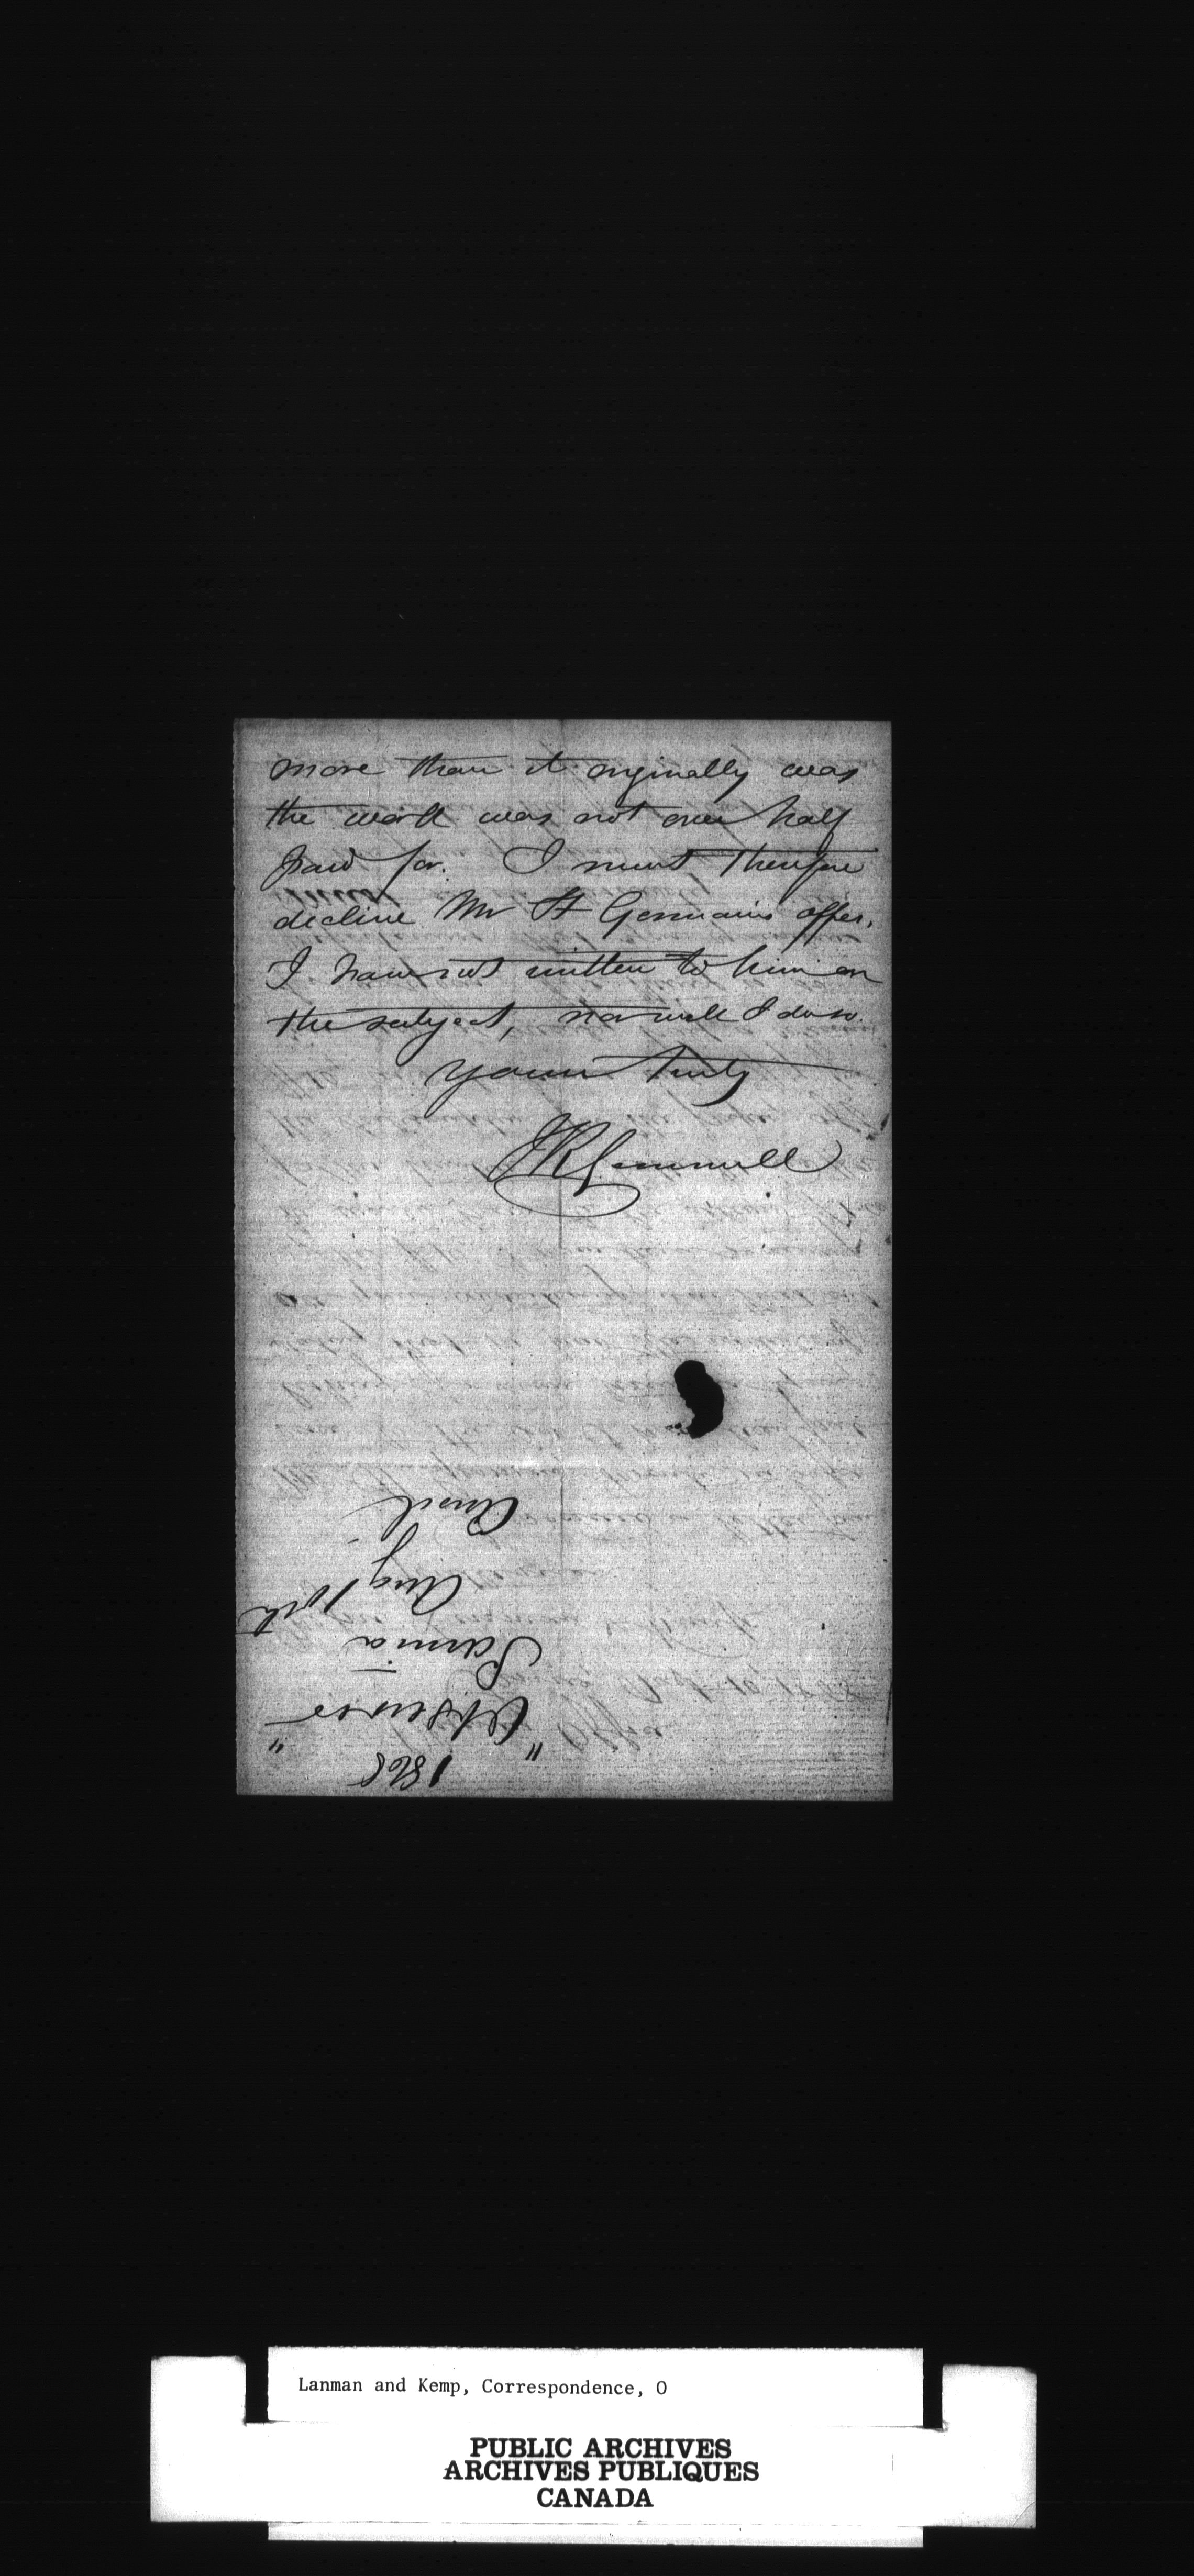 more than it originally was
the work was not over half
paid for. I must therefore
decline Mr St Germains offer.
I have not written to him on
the subject, nor will I do so.
Yours truly
JR Gemmill
1868
"Observer"
Sarnia
Aug 10th
Ansd
Lanman and Kemp, Correspondence, O
PUBLIC ARCHIVES
ARCHIVES PUBLIQUES
CANADA